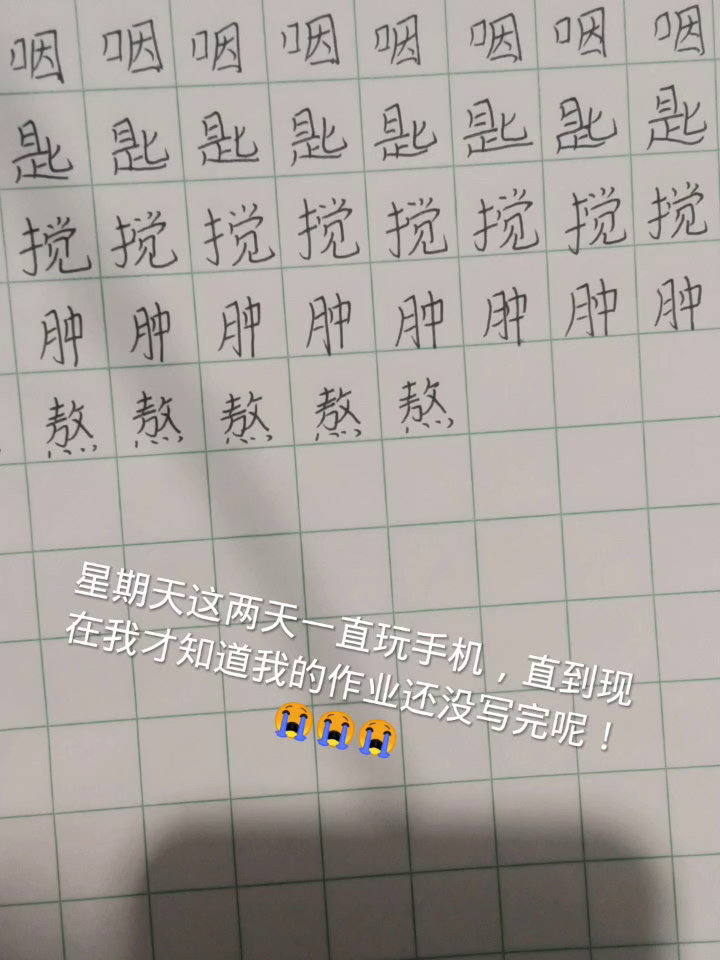 咽 咽 咽 咽 咽 咽 咽 咽
匙 匙 匙 匙 匙 匙 匙 匙
搅 搅 搅 搅 搅 搅 搅 搅
肿 肿 肿 肿 肿 肿 肿 肿
熬 熬 熬 熬 熬
星期天这两天一直玩手机，直到现
在我才知道我的作业还没写完呢！
😭😭😭